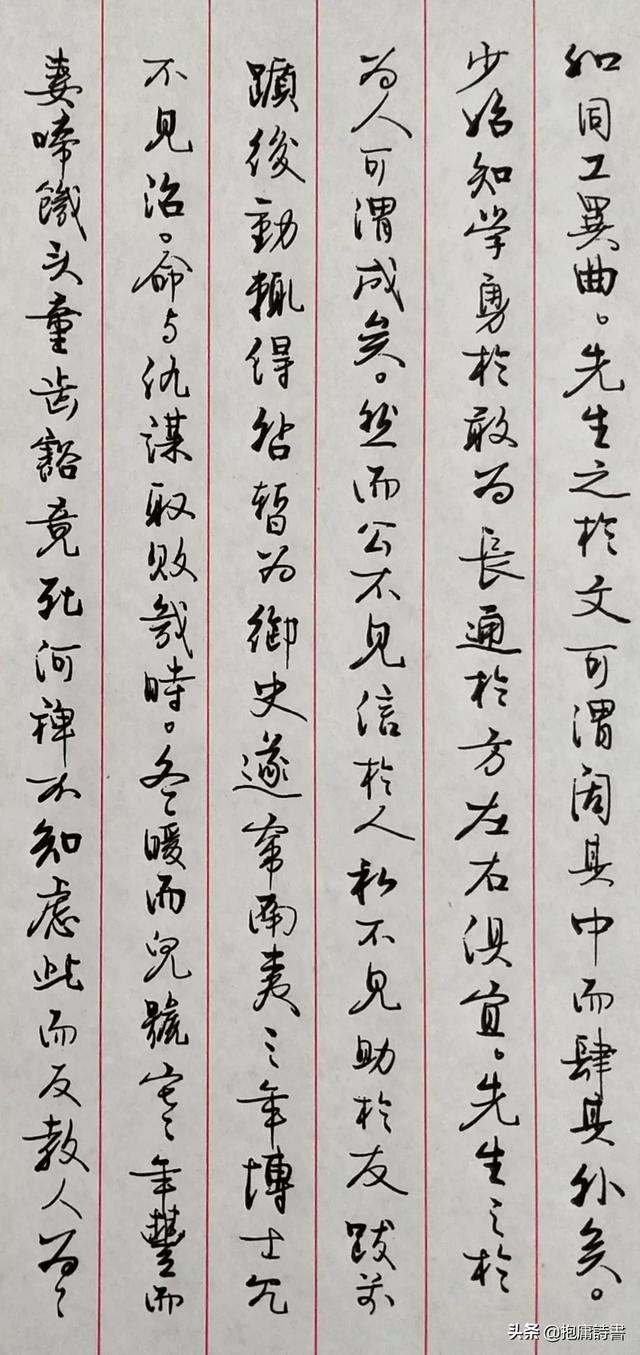 如同工異曲。先生之於文可謂闳其中而肆其外矣。
少始知学勇於敢为長通於方左右俱宜。先生之於
为人可謂成矣。然而公不見信於人私不見助於友跋前
躓後動輒得咎暫为御史遂竄南夷三年博士冗
不見治。命与仇謀取敗幾時。冬暖而兒號寒年豐而
妻啼饑头童齿豁竟死何裨不知慮此而反教人为
头条 @抱庸詩書